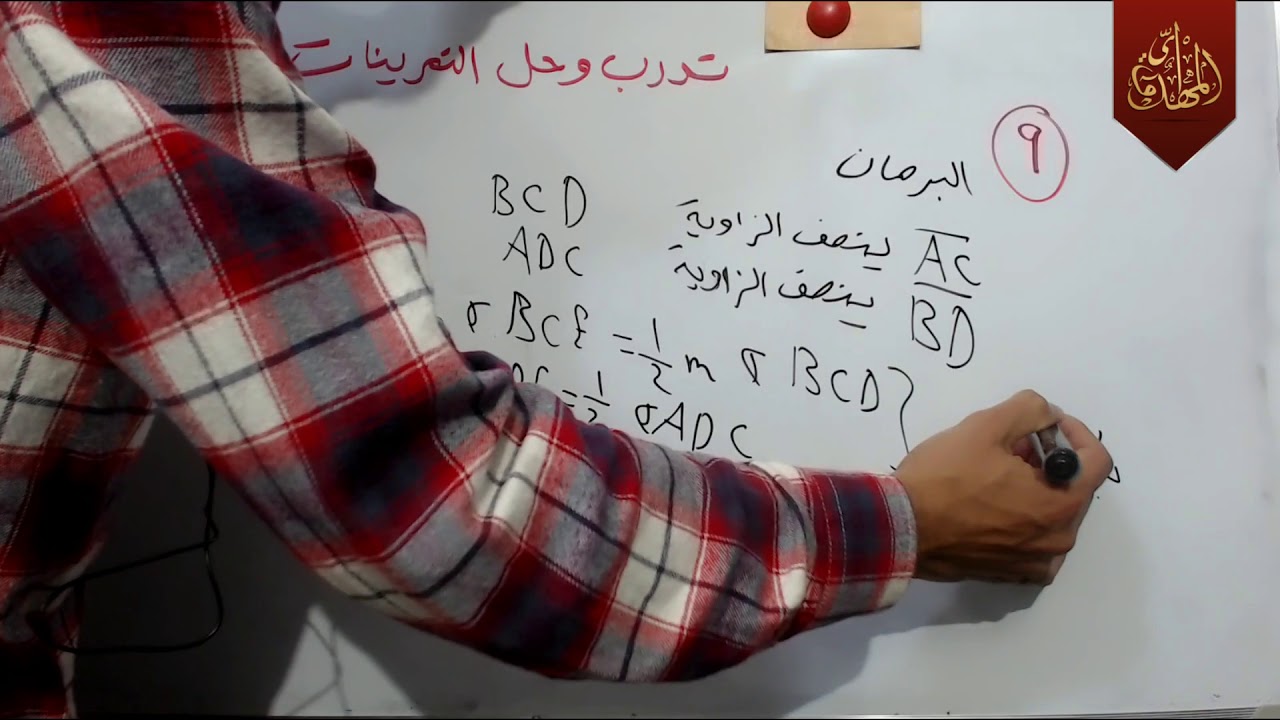 تدرب وحل التمرينات
٩
البرهان
AC ينصف الزاوية BCD
BD ينصف الزاوية ADC
BCE = 1/2 m ∢ BCD
= 1/2 ∢ ADC